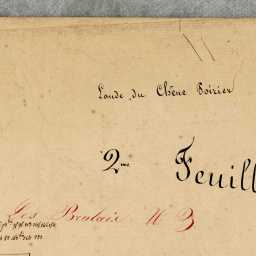 Lande du Chêne Poirier
2me Feuill
Les Brulais N 3